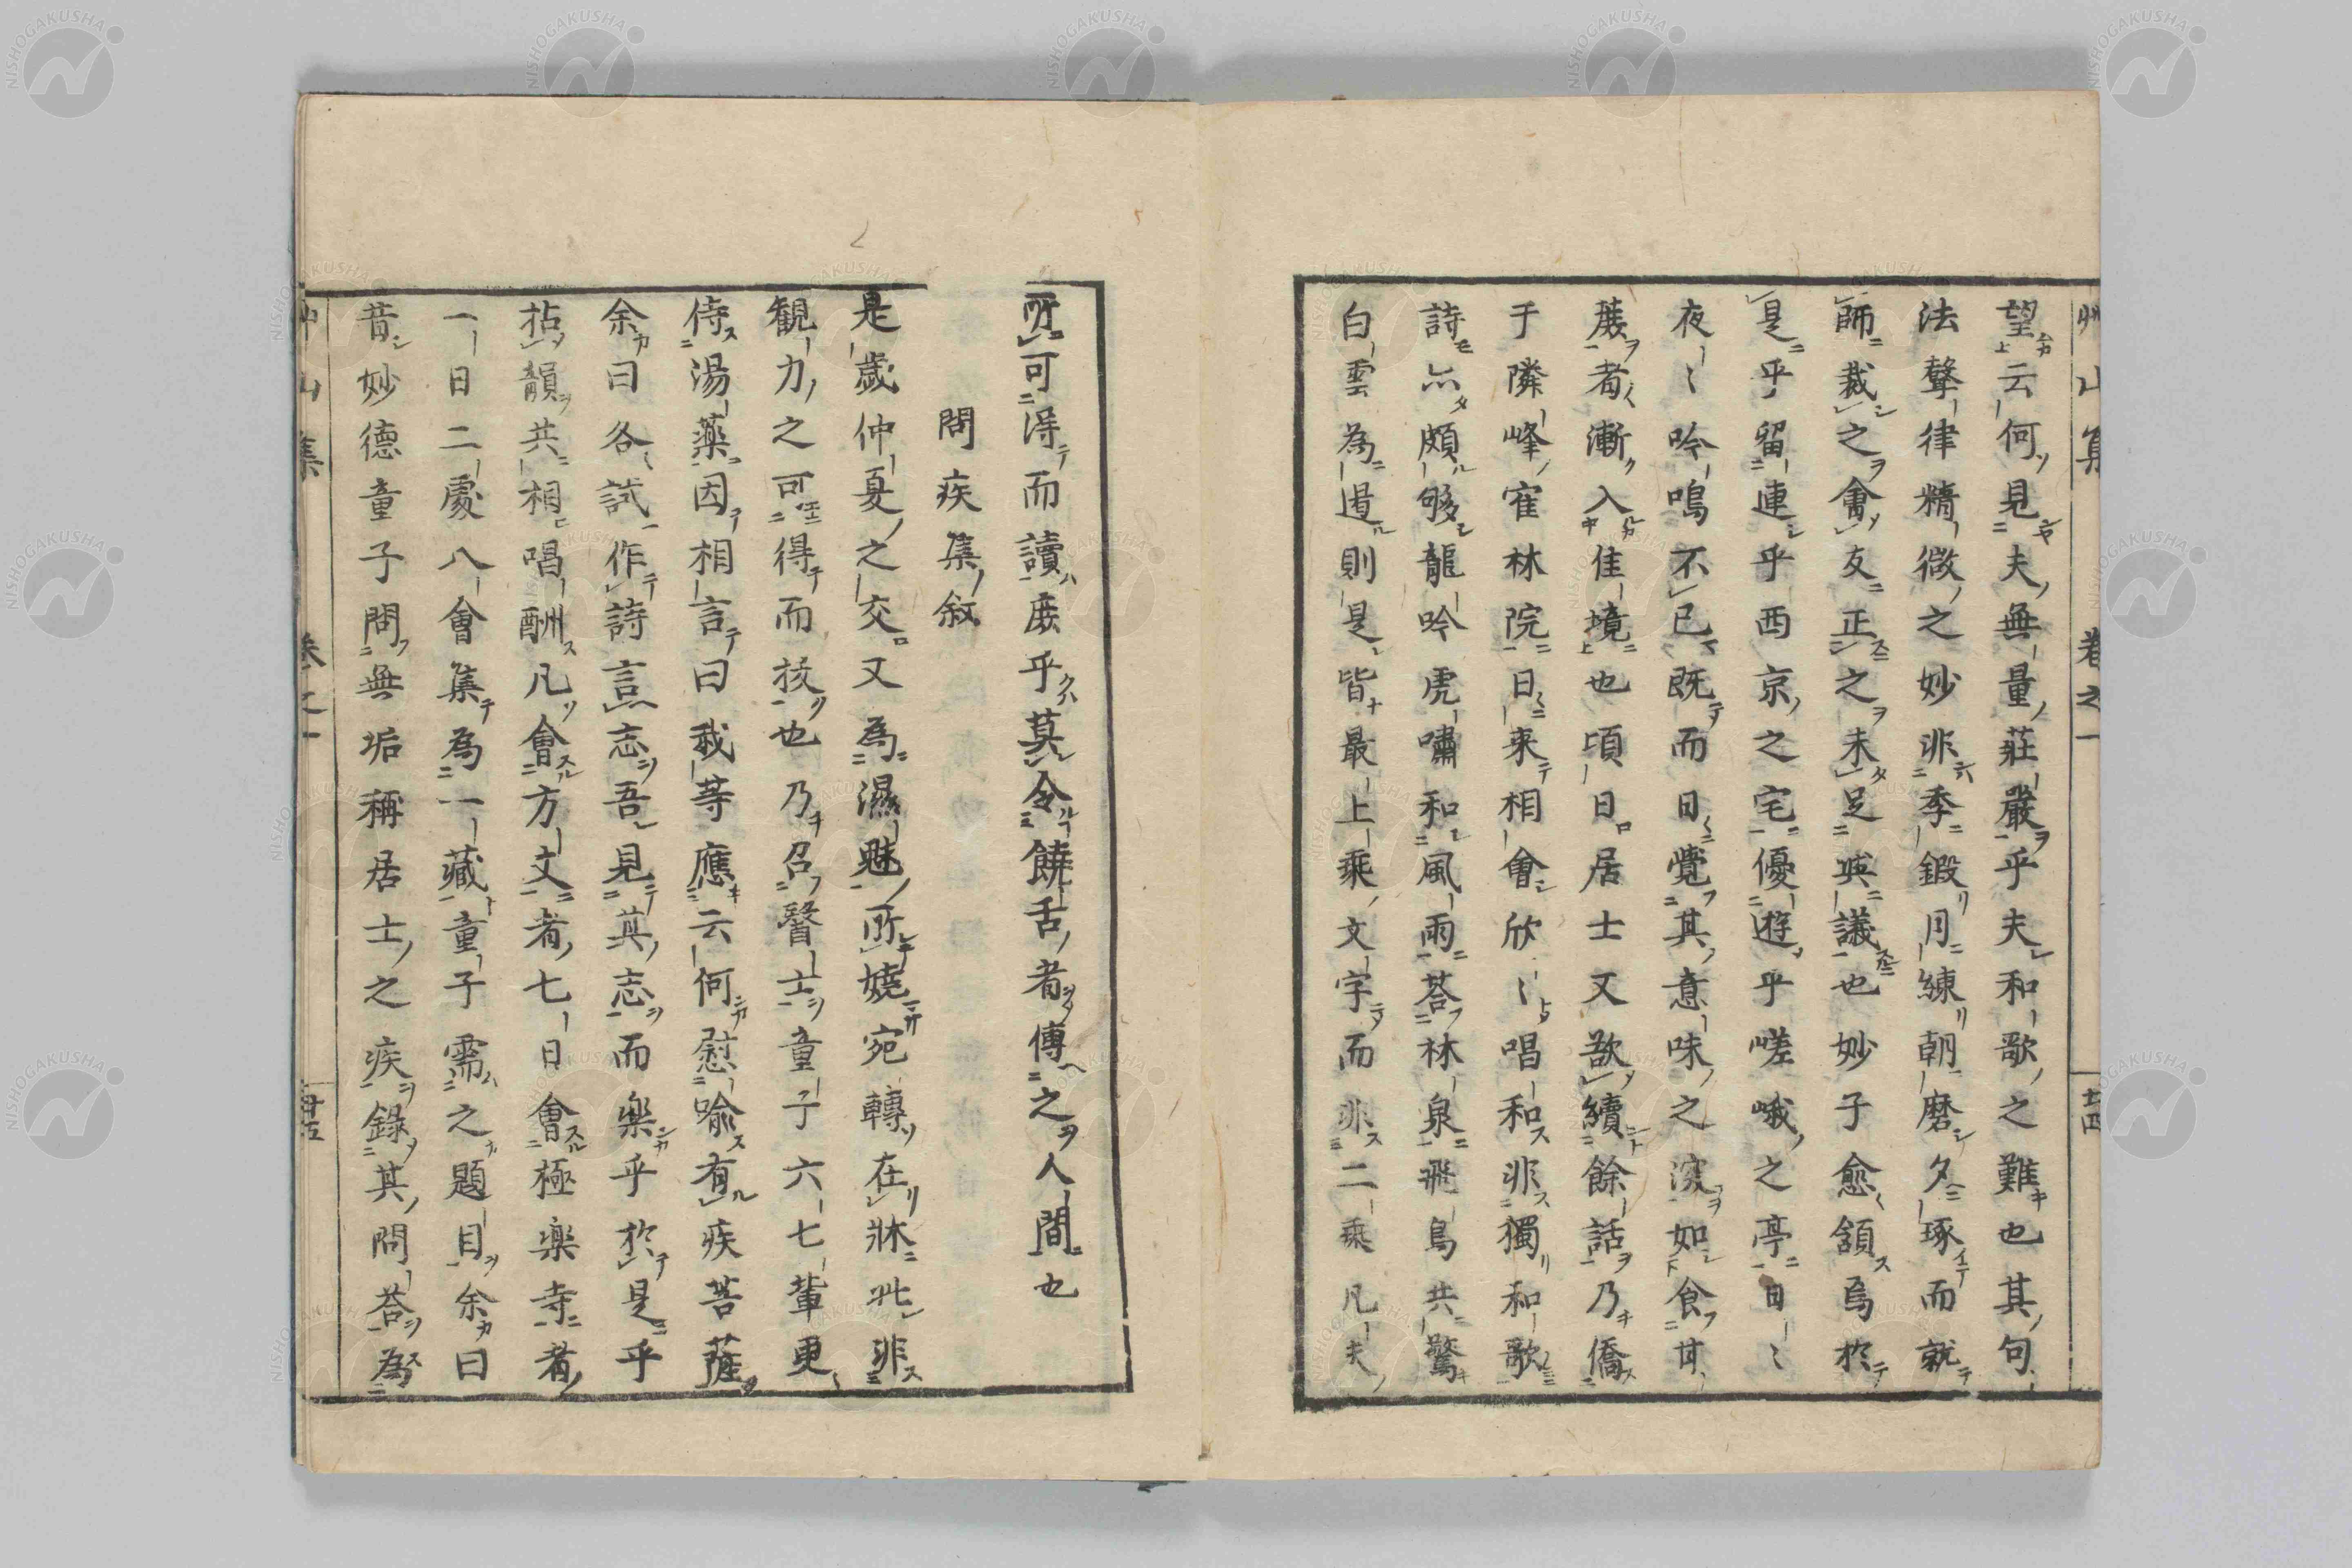 望云何見夫無量莊嚴乎夫和歌之難也其句
法聲律精微之妙非季鍛月練朝磨夕琢而就
師裁之會友正之未足與議也妙子愈頷焉於
是乎留連乎西京之宅優遊乎嵯峨之亭日〻
夜〻吟鳴不已既而日覺其意味之深如食甘
蔗者漸入佳境也頃日居士又欲續餘話乃僑
于隣峰寉林院日來相會欣〻唱和非獨和歌
詩亦頗够龍吟虎嘯和風雨荅林泉飛鳥共驚
白雲為遏則是皆最上乘文字而非二乘凡夫
所可淂而讀庶乎莫令饒舌者傳之人間也
問疾集敘
是歲仲夏之交又為濕魅所嬈宛轉在牀此非
観力之可得而拔也乃召醫士童子六七輩更
侍湯藥因相言曰我等應云何慰喻有疾菩薩
余曰各試作詩言志吾見其志而樂乎於是乎
拈韻共相唱酬凡會方丈者七日會極楽寺者
一日二處八會集為一藏童子需之題目余曰
昔妙德童子問無垢稱居士之疾錄其問荅為
卷之一